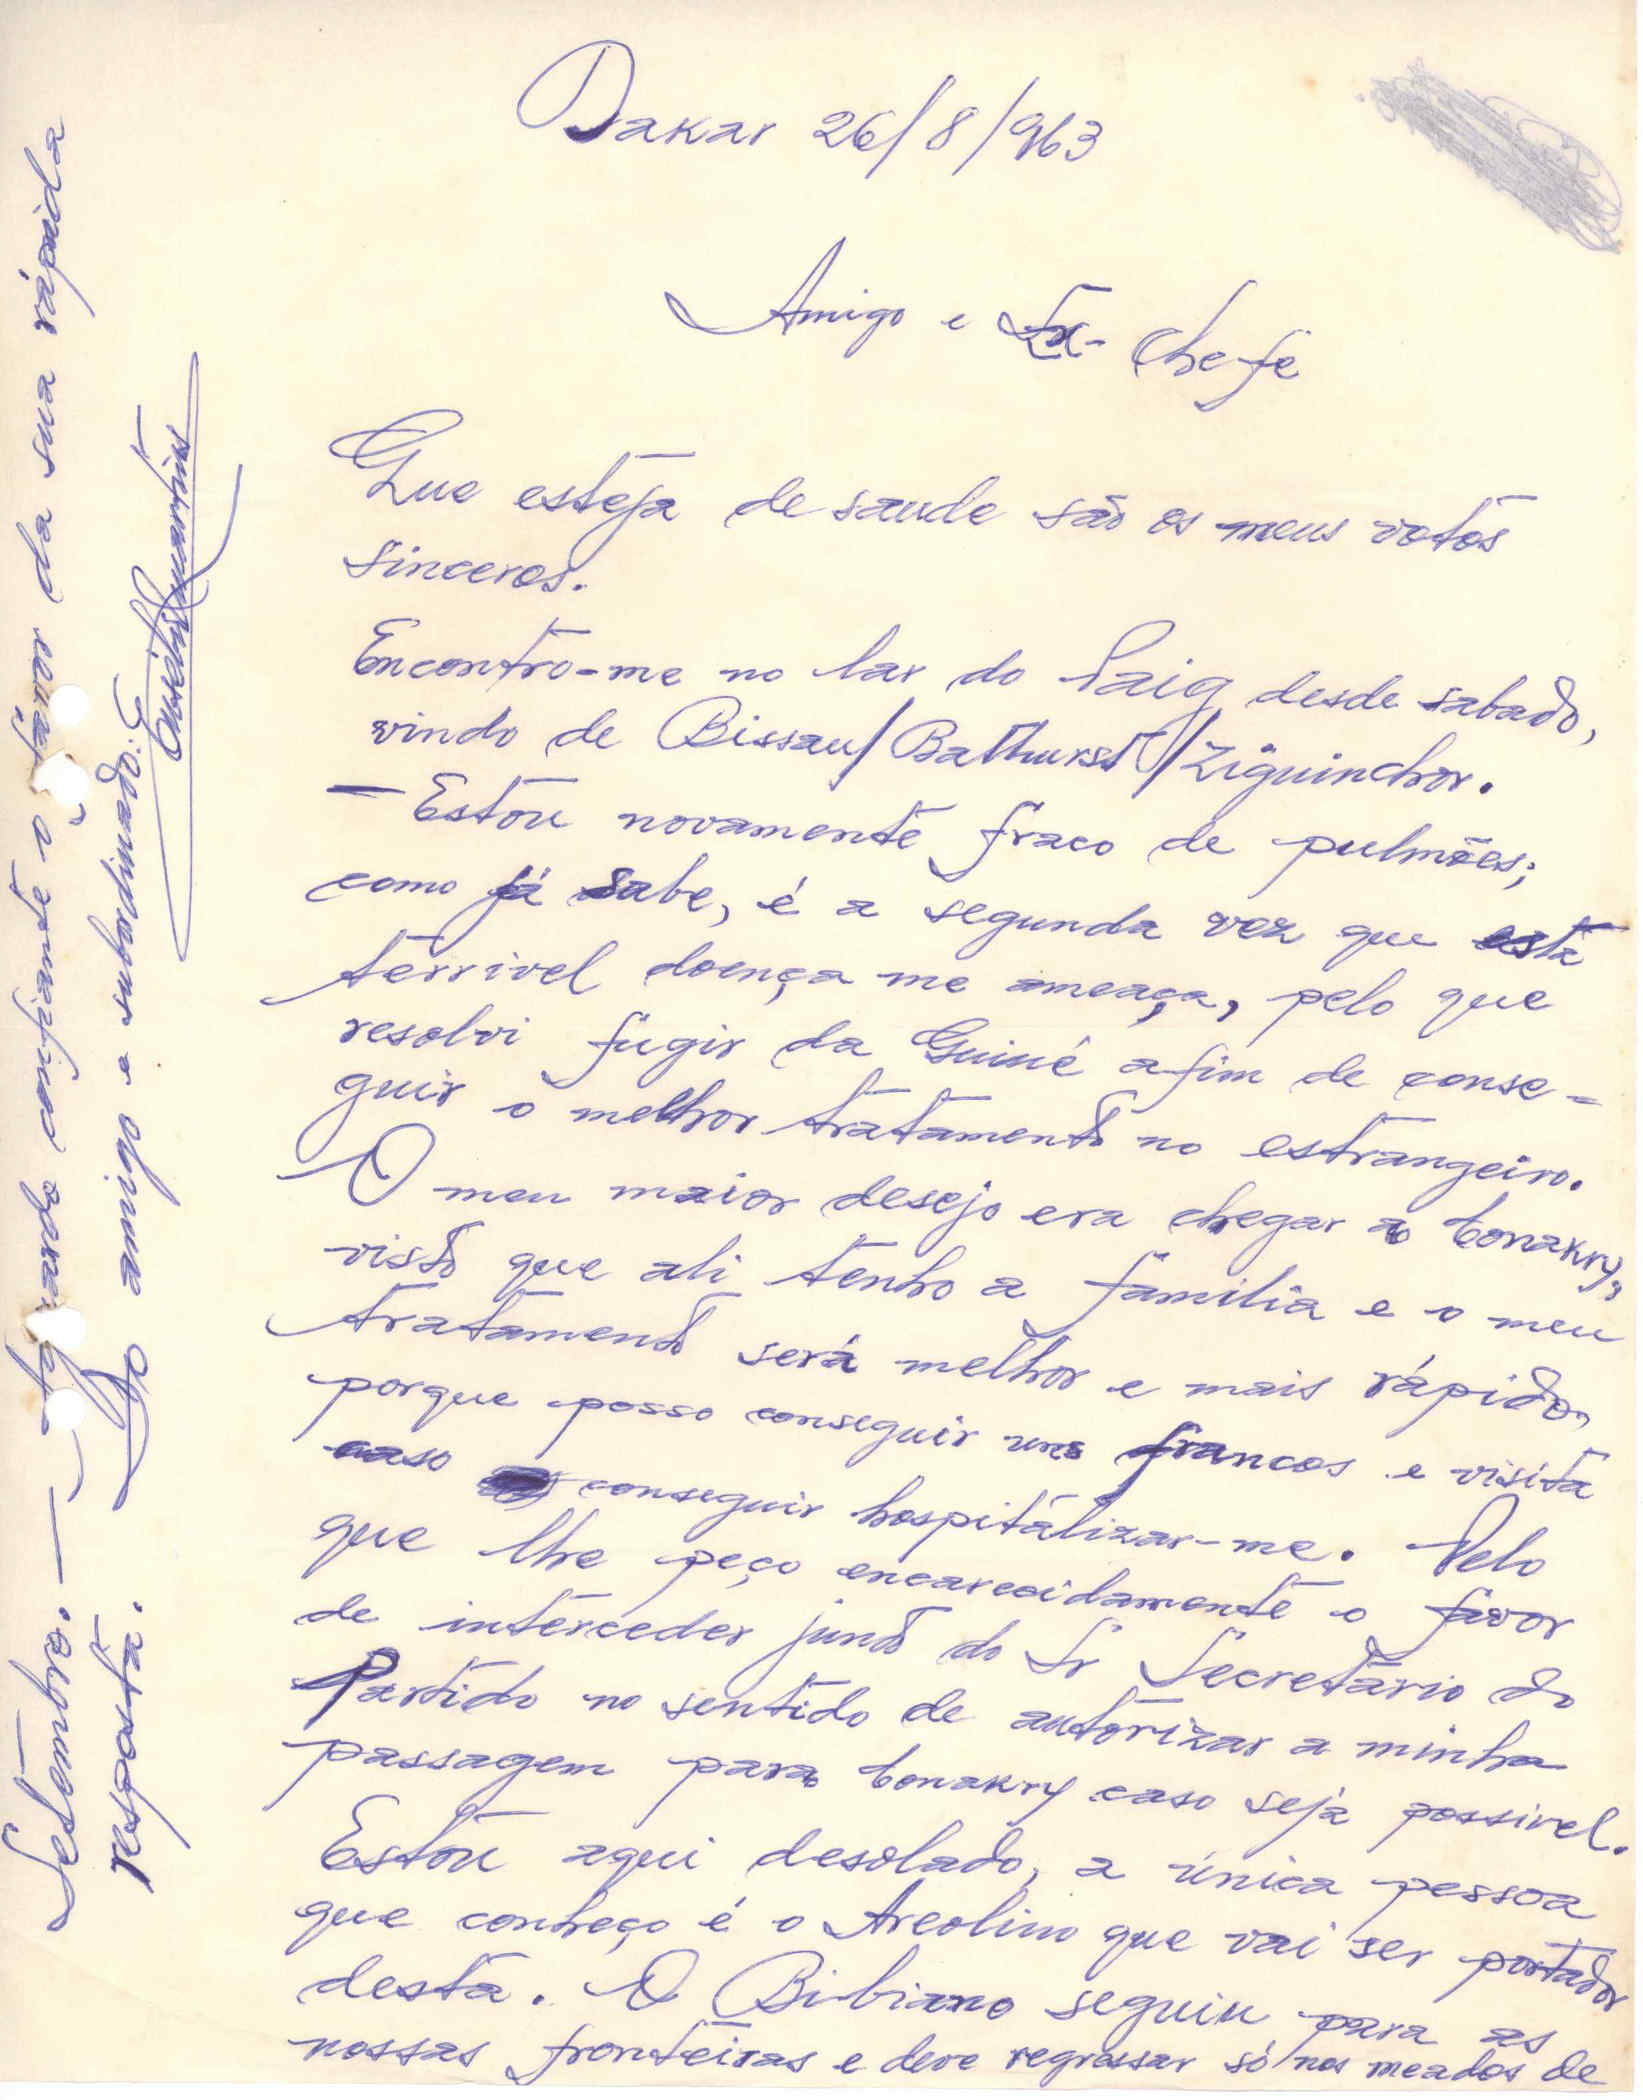 Dakar 26/8/963
Amigo e Ex-Chefe
Que esteja de saude são os meus votos
sinceros.
Encontro-me no lar do Paig desde sabado,
vindo de Bissau/Bathurst/Ziguinchor.
— Estou novamente fraco de pulmões;
como já sabe, é a segunda vez que esta
terrivel doença me ameaça, pelo que
resolvi fugir da Guiné afim de conse-
guir o melhor tratamento no estrangeiro.
O meu maior desejo era chegar a Conakry,
visto que ali tenho a familia e o meu
tratamento será melhor e mais rápido,
porque posso conseguir uns francos e visita
caso conseguir hospitalizar-me. Pelo
que lhe peço encarecidamente o favor
de interceder junto do Sr Secretário do
Partido no sentido de autorizar a minha
passagem para Conakry caso seja possivel.
Estou aqui desolado, a única pessoa
que conheço é o Areolino que vai ser portador
desta. O Bibiano seguiu para as
nossas fronteiras e deve regressar só nos meados de
Setembro. — Aguardo confiante o favor da sua rápida
resposta. Do amigo e subordinado: